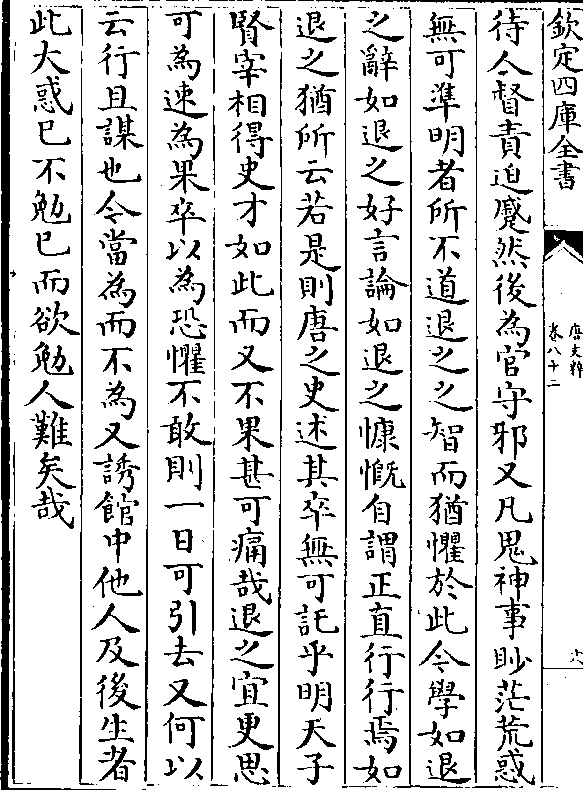 欽定四庫全書
唐文粹
卷八十二
六
待人督責迫蹙然後為官守邪又凡鬼神事眇茫荒惑
無可準明者所不道退之之智而猶懼於此今學如退
之辭如退之好言論如退之慷慨自謂正直行行焉如
退之猶所云若是則唐之史述其卒無可託乎明天子
賢宰相得史才如此而又不果甚可痛哉退之宜更思
可為速為果卒以為恐懼不敢則一日可引去又何以
云行且謀也今當為而不為又誘館中他人及後生者
此大惑已不勉已而欲勉人難矣哉